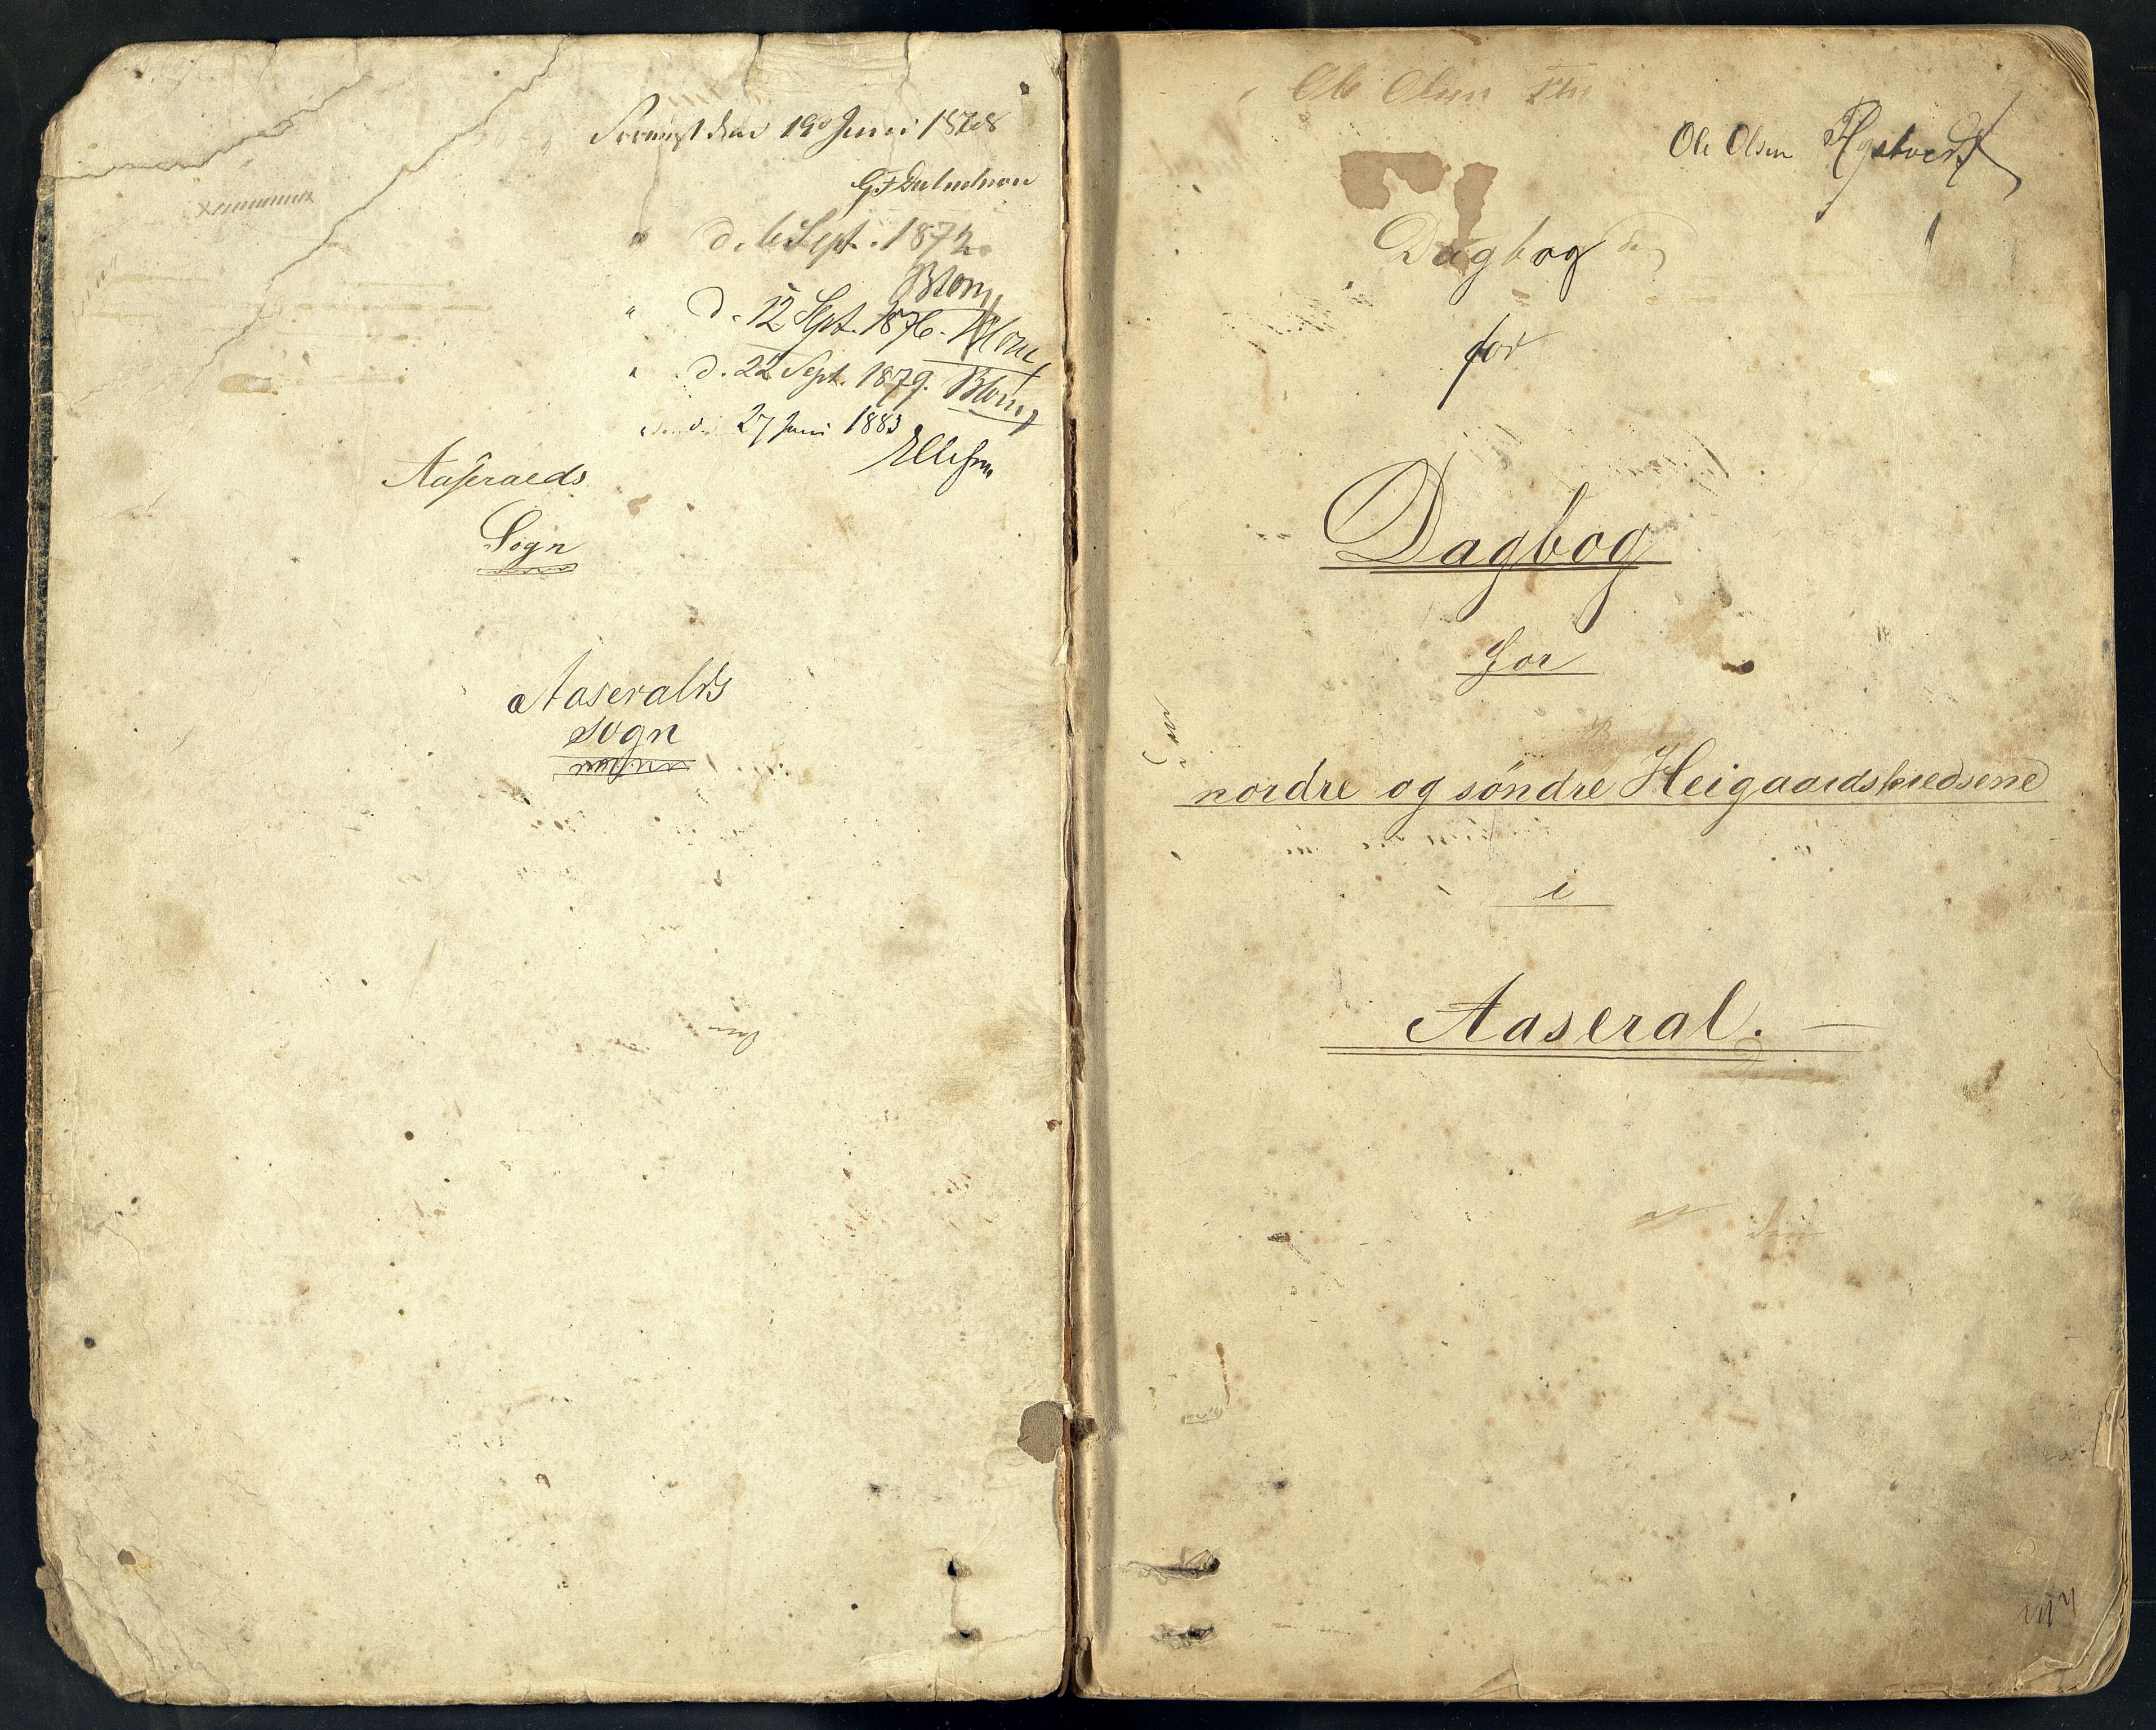 Fremlagt den 19 Juni 1868
" d. 6 Sept. 1872
Blom
" d. 12 Sept. 1876. Blom
" d. 22 Sept. 1879. Blom
d. 27 Juni 1883
Ellefsen
Aaseraeds
Sogn
Aaseralds
sogn
Ole Olsen
Ole Olsen
Dagbog
for
Dagbog
for
nordre og söndre Heigaardskredsene
i
Aaseral.